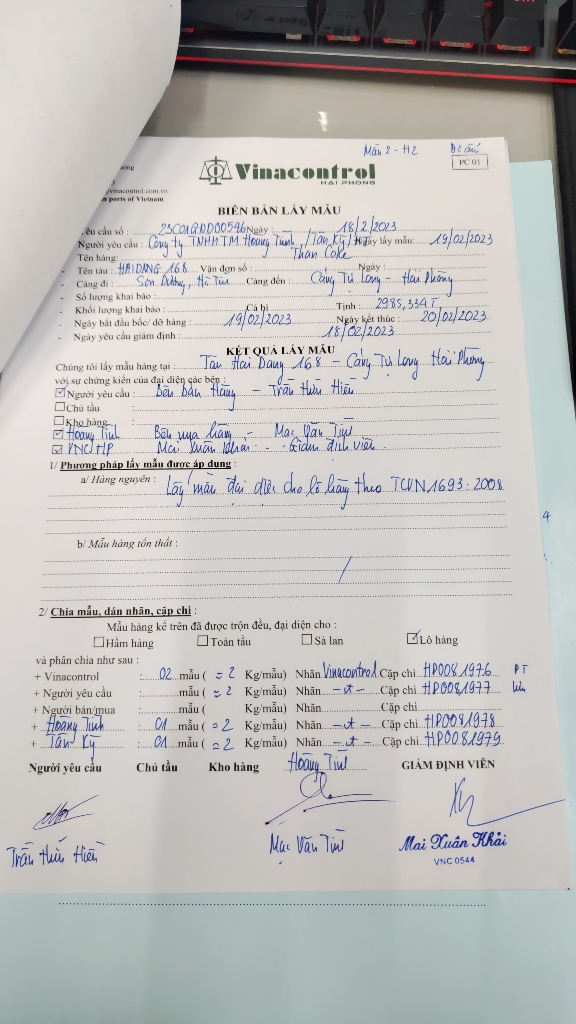 Mẫu 2 - H2
PC 01
Vinacontrol
HAI PHONG
vinacontrol.com.vn
ports of Vietnam
BIÊN BẢN LẤY MẪU
êu cầu số : 23C01GDD00546 Ngày : 18/2/2023
Người yêu cầu : Công ty TNHH TM Hoàng Tính / Tân Kỳ / Ngày lấy mẫu: 19/02/2023
- Tên hàng: Than Coke
- Tên tàu : HAI DANG 168 Vận đơn số : Ngày :
- Cảng đi : Sơn Dương, Hà Tĩnh Cảng đến : Cảng Tự Long - Hải Phòng
- Số lượng khai báo :
- Khối lượng khai báo : Cả bì Tịnh : 2985,334T.
- Ngày bắt đầu bốc/ dỡ hàng : 19/02/2023 Ngày kết thúc : 20/02/2023
- Ngày yêu cầu giám định : 18/02/2023
KẾT QUẢ LẤY MẪU
Chúng tôi lấy mẫu hàng tại : Tàu Hai Dang 168 - Cảng Tự Long Hải Phòng
với sự chứng kiến của đại diện các bên :
Người yêu cầu : Bên bán hàng - Trần Hữu Hiến
Chủ tầu :
Kho hàng :
Hoàng Tính Bên mua hàng - Mạc Văn Tính
VNC HP Mai Xuân Khải - Giám định viên.
1/ Phương pháp lấy mẫu được áp dụng :
a/ Hàng nguyên : Lấy mẫu đại diện cho lô hàng theo TCVN 1693 : 2008
b/ Mẫu hàng tổn thất :
/
4
2/ Chia mẫu, dán nhãn, cặp chì :
Mẫu hàng kể trên đã được trộn đều, đại diện cho :
Hầm hàng Toàn tầu Sà lan Lô hàng
và phân chia như sau :
+ Vinacontrol : 02 mẫu ( = 2 Kg/mẫu) Nhãn Vinacontrol Cặp chì HP0081976 PT
+ Người yêu cầu : mẫu ( = 2 Kg/mẫu) Nhãn -nt- Cặp chì HP0081977 lưu
+ Người bán/mua : mẫu ( Kg/mẫu) Nhãn Cặp chì
+ Hoàng Tính : 01 mẫu ( = 2 Kg/mẫu) Nhãn -nt- Cặp chì HP0081978
+ Tân Kỳ : 01 mẫu ( = 2 Kg/mẫu) Nhãn -nt- Cặp chì HP0081979
Người yêu cầu Chủ tầu Kho hàng Hoàng Tính GIÁM ĐỊNH VIÊN
Trần Hữu Hiến Mạc Văn Tính Mai Xuân Khải
VNC 0544